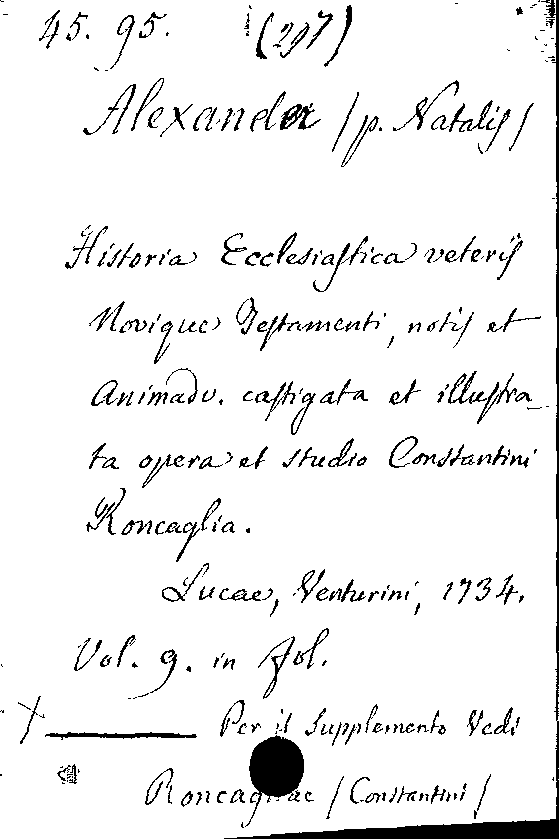 45. 95. (297)
Alexander /p. Natalis/
Historia Ecclesiastica veteris
Novique Testamenti, notis et
Animadv. castigata et illustra_
ta opera et studio Constantini
Roncaglia.
Lucae, Venturini, 1734.
Vol. 9. in fol.
Per il Supplemento Vedi
Roncagliae /Constantini/